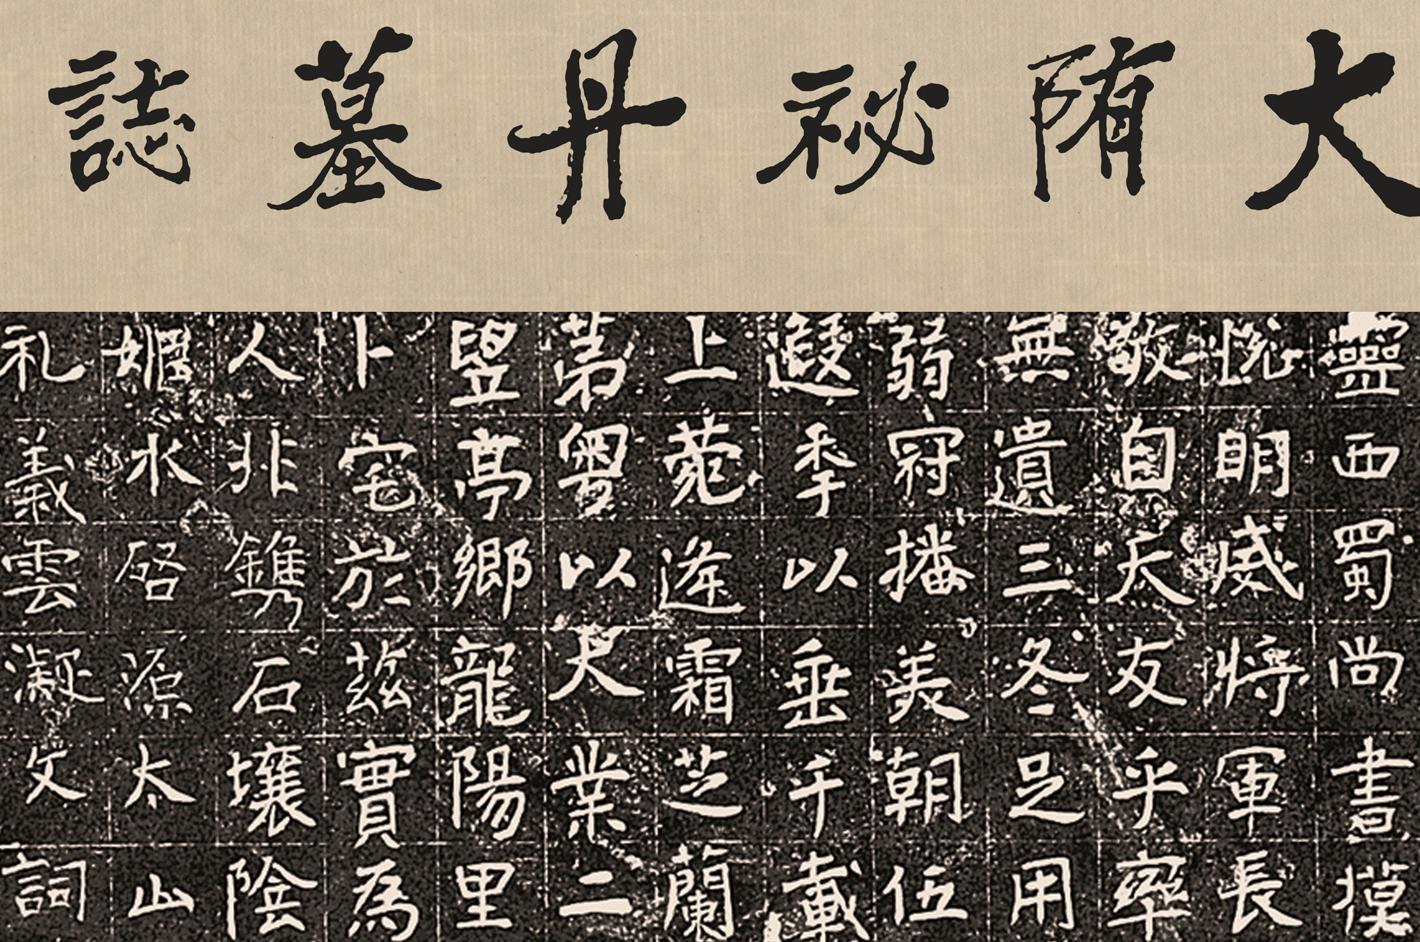 大陏祕丹墓誌
靈西蜀尚書摸
悅明威將軍長
敬自天友乎率
無遺三冬足用
弱冠播美朝伍
遐季以垂千載
上菀逢霜芝蘭
苐粵以大業二
竪亭鄉龍陽里
卜宅於茲實為
人兆鐫石壤陰
水啓源太山
礼義雲凝文詞